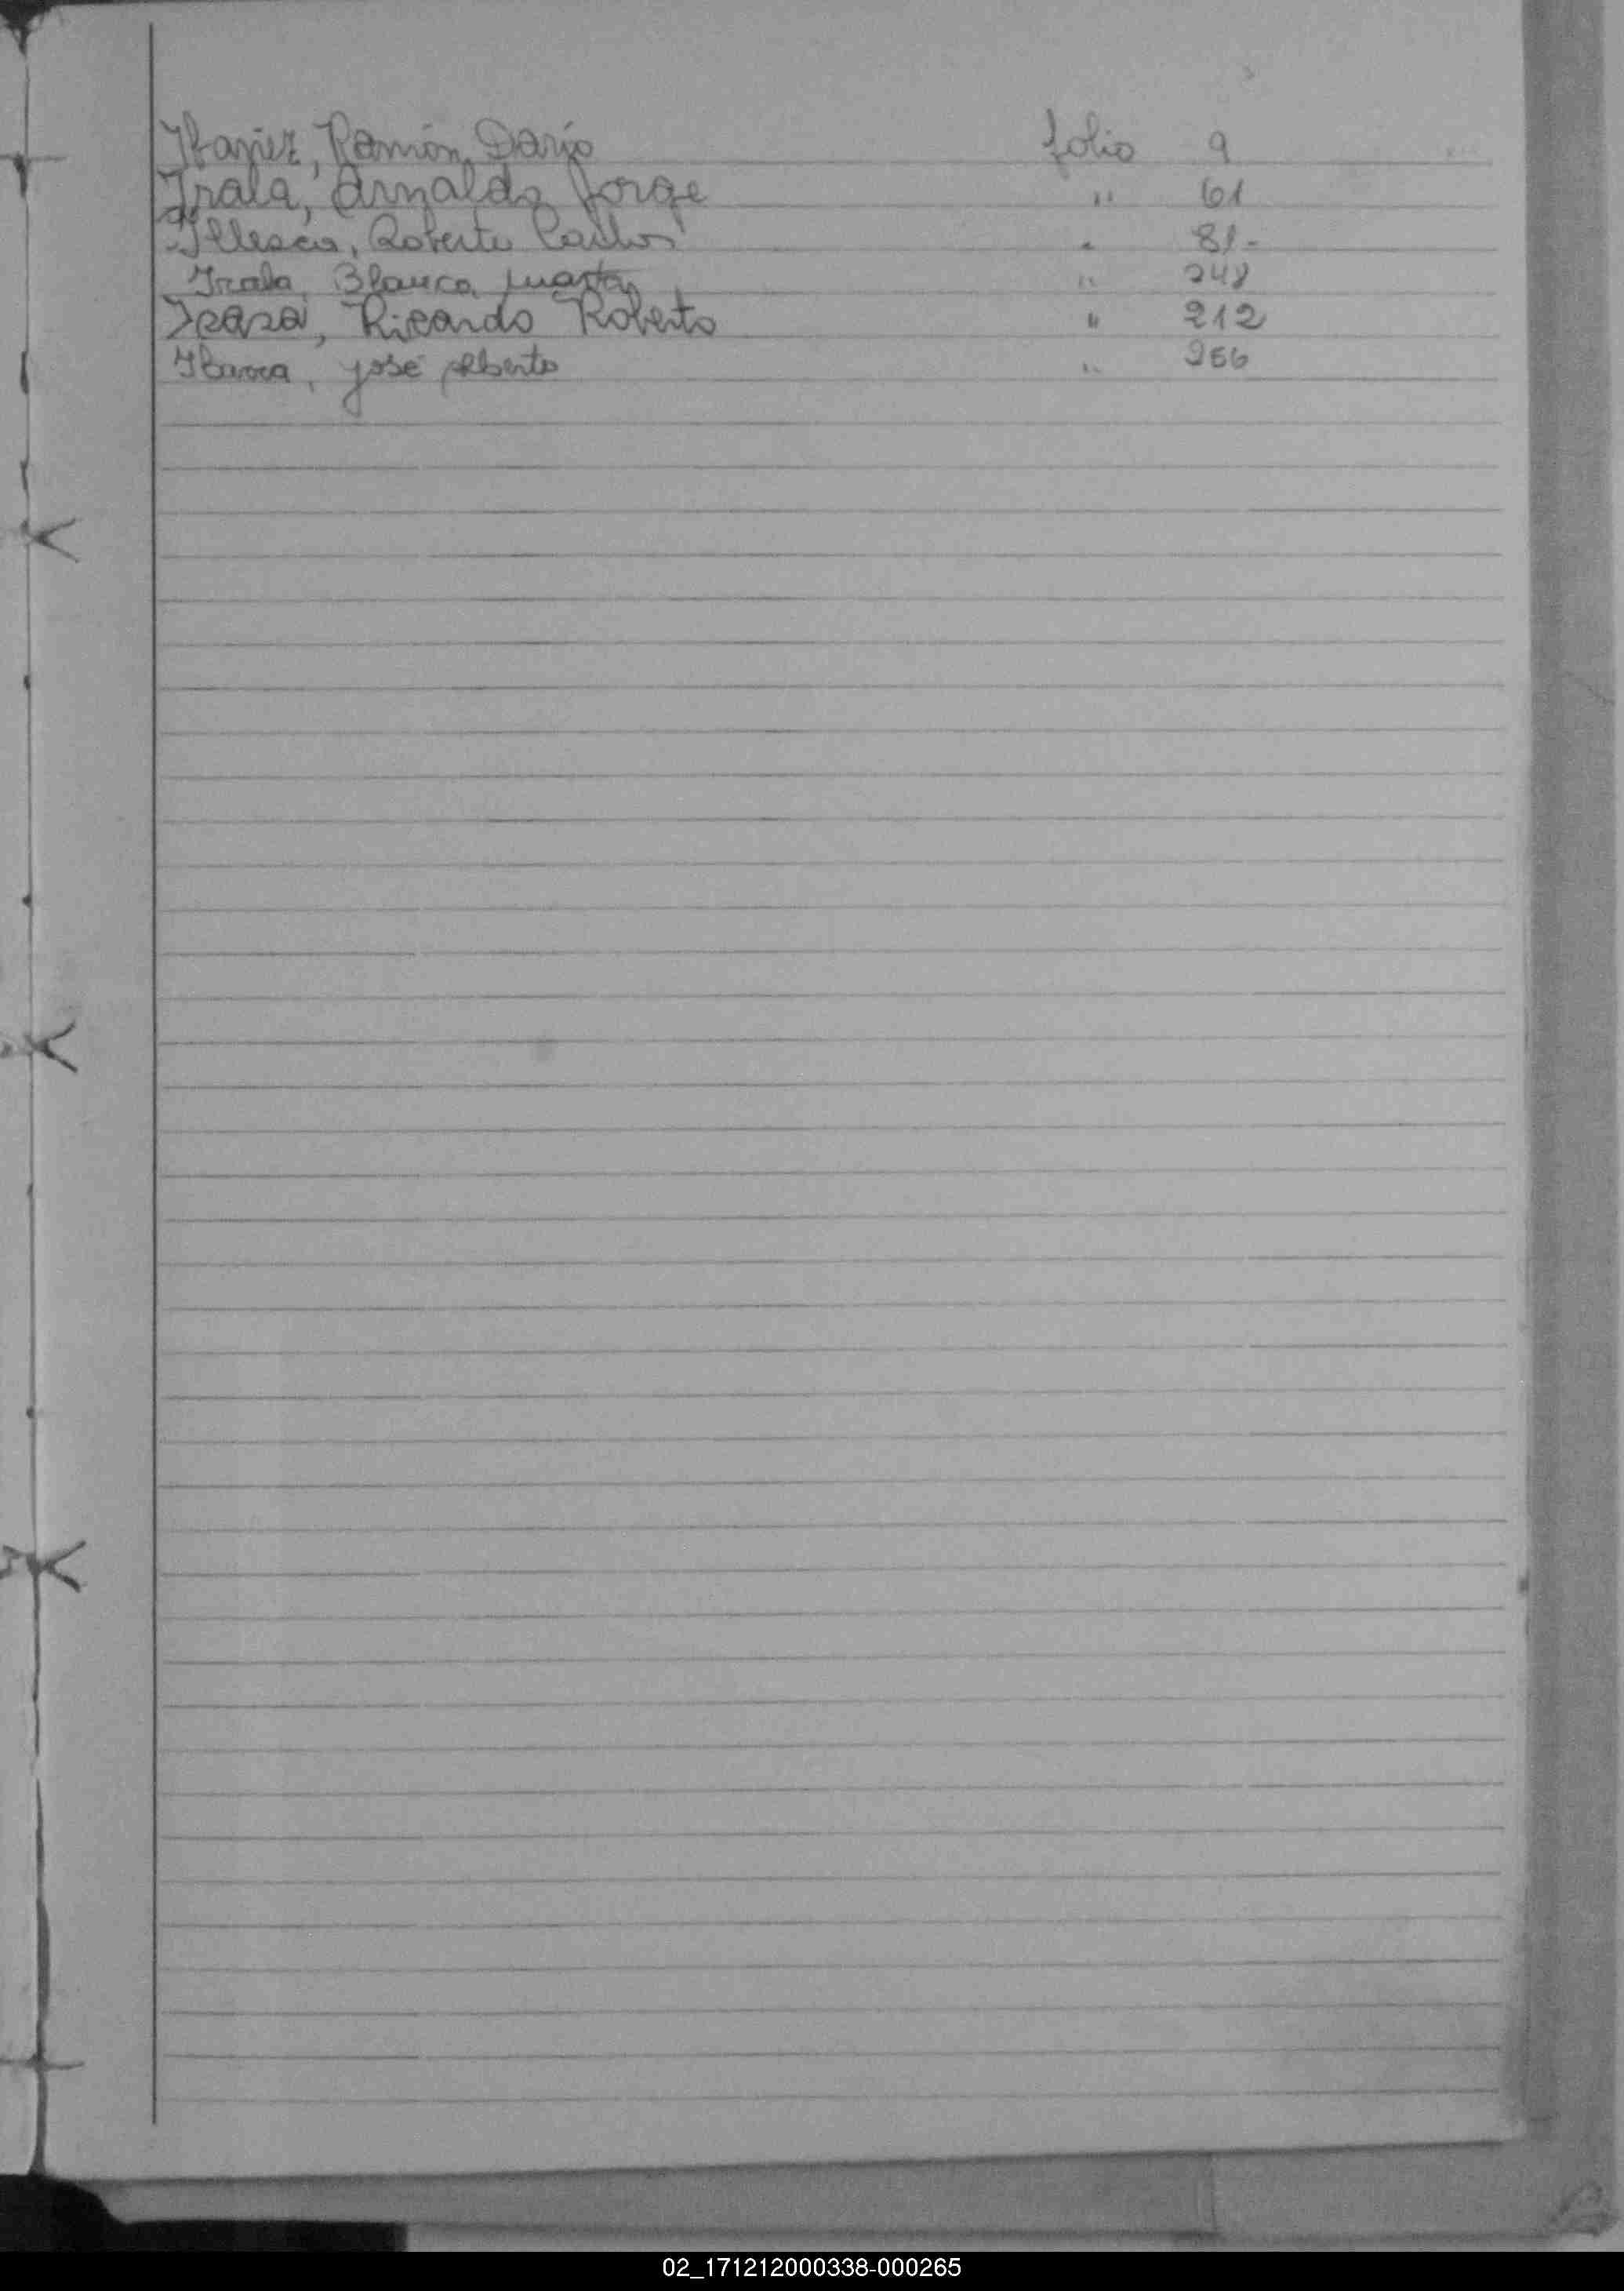 Ibañez, Ramón Darío folio 9
Irala, Arnaldo Jorge " 61
Illescas, Roberto Carlos " 81-
Irala, Blanca Marta " 248
Irazá, Ricardo Roberto " 212
Ibarra, José Alberto " 256
02_171212000338-000265